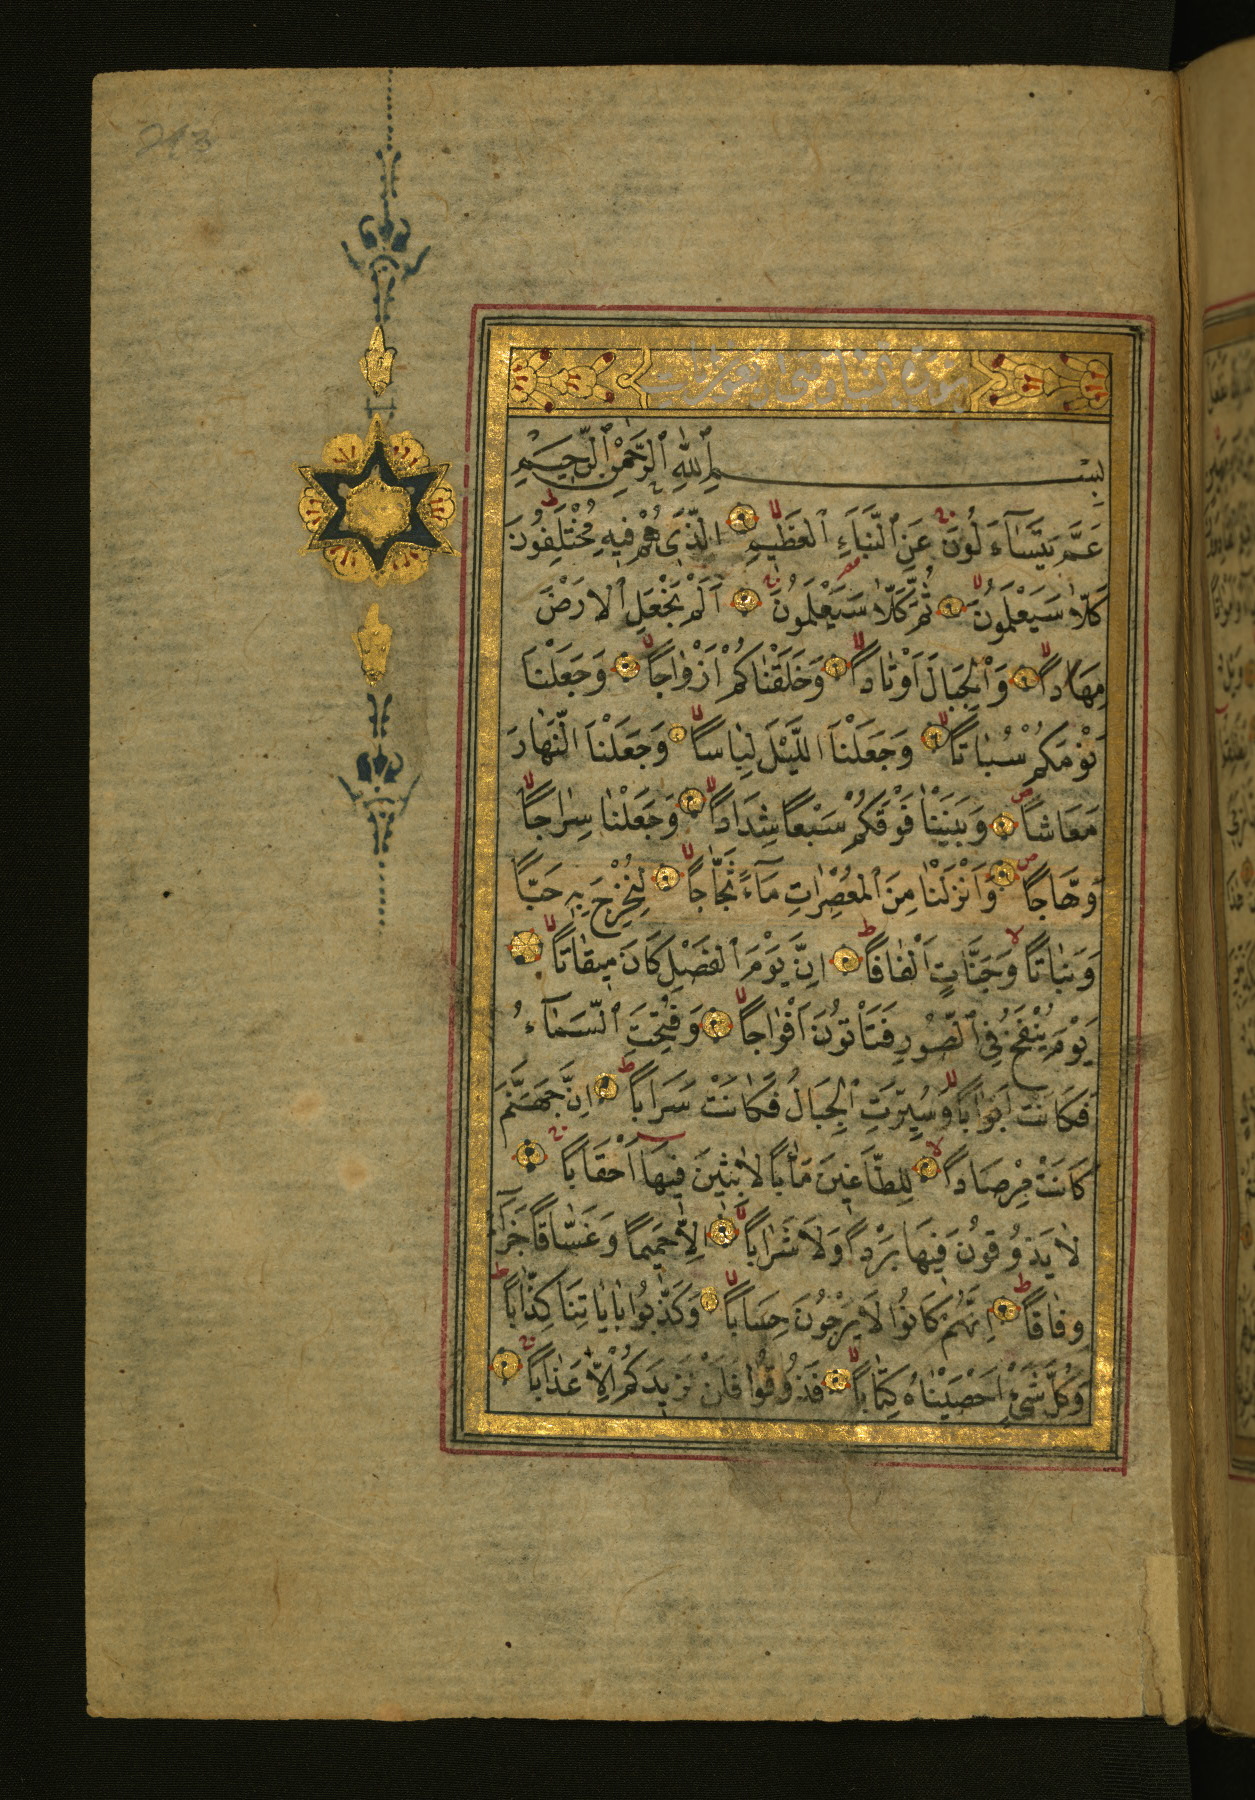 213
سورة النبأ وهي اربعون ايات
بِسْمِ ٱللّٰهِ ٱلرَّحْمٰنِ ٱلرَّحِيمِ
عَمَّ يَتَسَآءَلُونَ عَنِ ٱلنَّبَاءِ ٱلْعَظِيمِ الَّذِى هُمْ فِيهِ مُخْتَلِفُونَ
كَلَّا سَيَعْلَمُونَ ثُمَّ كَلَّا سَيَعْلَمُونَ اَلَمْ نَجْعَلِ ٱلارَضْ
مِهَاداً وَٱلْجِبَالَ اَوْتَاداً وَخَلَقْنَاكُمْ اَزْوَاجاً وَجَعَلْنَا
نَوْمَكُمْ سُبَاتاً وَجَعَلْنَا اللَّيْلَ لِبَاساً وَجَعَلْنَا النَّهَارَ
مَعَاشاً وَبَنَيْنَا فَوْقَكُمْ سَبْعاً شِدَاداً وَجَعَلْنَا سِرَاجاً
وَهَّاجاً وَاَنْزَلْنَا مِنَ ٱلْمُعْصِرَاتِ مَآءً ثَجَّاجاً لِنُخْرِجَ بِهِ حَبّاً
وَنَبَاتاً وَجَنَّاتٍ اَلْفَافاً اِنَّ يَوْمَ ٱلْفَصْلِ كَانَ مِيقَاتاً
يَوْمَ يُنْفَخُ فِى ٱلصُّورِ فَتَأْتُونَ اَفْوَاجاً وَفُتِحَتِ ٱلسَّمَآءُ
فَكَانَتْ اَبْوَاباً وَسُيِّرَتِ ٱلْجِبَالُ فَكَانَتْ سَرَاباً اِنَّ جَهَنَّمَ
كَانَتْ مِرْصَاداً لِلطَّاغِينَ مَأٰباً لَابِثِينَ فِيهَا اَحْقَاباً
لَا يَذُوقُونَ فِيهَا بَرْداً وَلَا شَرَاباً اِلَّا حَمِيماً وَغَسَّاقاً جَزَآءً
وِفَاقاً اِنَّهُمْ كَانُوا لَا يَرْجُونَ حِسَاباً وَكَذَّبُوا بِاٰيَاتِنَا كِذَّاباً
وَكُلَّ شَىْءٍ اَحْصَيْنَاهُ كِتَاباً فَذُوقُوا فَلَنْ نَزِيدَكُمْ اِلَّا عَذَاباً